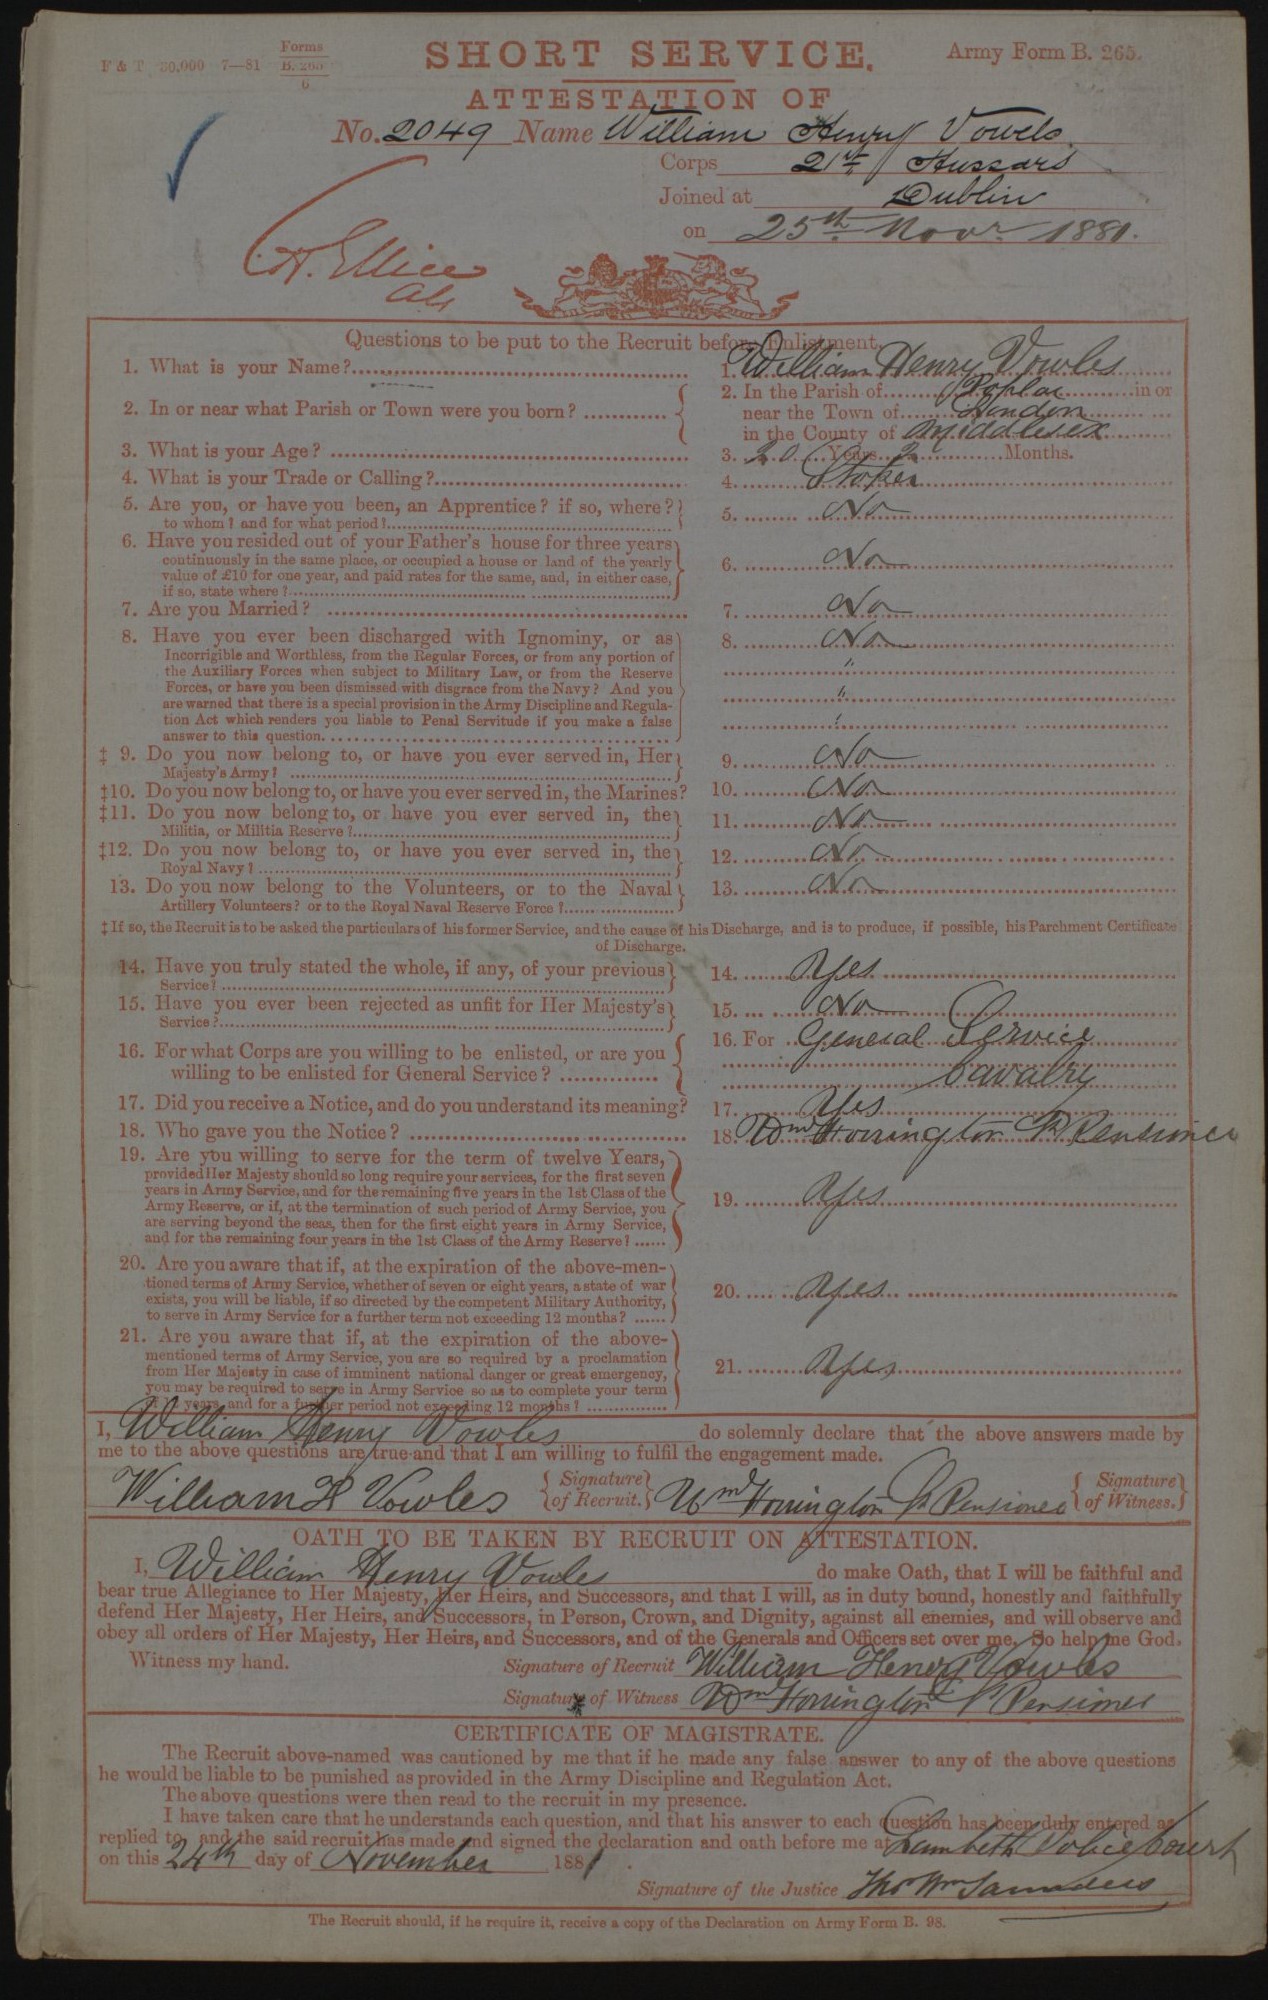 F & T 30,000 7—81 Forms B. 265 6
SHORT SERVICE.
Army Form B. 265.
ATTESTATION OF
No. 2049 Name William Henry Vowels
Corps 21st Hussars
Joined at Dublin
on 25th Novr 1881.
Questions to be put to the Recruit before Enlistment.
1. What is your Name? 1. William Henry Vowles
2. In or near what Parish or Town were you born? 2. In the Parish of Poplar in or
near the Town of London
in the County of Middlesex
3. What is your Age? 3. 20 Years 2 Months.
4. What is your Trade or Calling? 4. Stoker
5. Are you, or have you been, an Apprentice? if so, where? 5. No
to whom? and for what period?
6. Have you resided out of your Father's house for three years
continuously in the same place, or occupied a house or land of the yearly 6. No
value of £10 for one year, and paid rates for the same, and, in either case,
if so, state where?
7. Are you Married? 7. No
8. Have you ever been discharged with Ignominy, or as 8. No
Incorrigible and Worthless, from the Regular Forces, or from any portion of
the Auxiliary Forces when subject to Military Law, or from the Reserve "
Forces, or have you been dismissed with disgrace from the Navy? And you "
are warned that there is a special provision in the Army Discipline and Regula-
tion Act which renders you liable to Penal Servitude if you make a false "
answer to this question.
‡ 9. Do you now belong to, or have you ever served in, Her 9. No
Majesty's Army?
‡10. Do you now belong to, or have you ever served in, the Marines? 10. No
‡11. Do you now belong to, or have you ever served in, the 11. No
Militia, or Militia Reserve?
‡12. Do you now belong to, or have you ever served in, the 12. No
Royal Navy?
13. Do you now belong to the Volunteers, or to the Naval 13. No
Artillery Volunteers? or to the Royal Naval Reserve Force?
‡ If so, the Recruit is to be asked the particulars of his former Service, and the cause of his Discharge, and is to produce, if possible, his Parchment Certificate
of Discharge.
14. Have you truly stated the whole, if any, of your previous 14. Yes
Service?
15. Have you ever been rejected as unfit for Her Majesty's 15. No
Service?
16. For what Corps are you willing to be enlisted, or are you 16. For General Service
willing to be enlisted for General Service? Cavalry
17. Did you receive a Notice, and do you understand its meaning? 17. Yes
18. Who gave you the Notice? 18. Wm Horrington Pensioner
19. Are you willing to serve for the term of twelve Years,
provided Her Majesty should so long require your services, for the first seven
years in Army Service, and for the remaining five years in the 1st Class of the 19. Yes
Army Reserve, or if, at the termination of such period of Army Service, you
are serving beyond the seas, then for the first eight years in Army Service,
and for the remaining four years in the 1st Class of the Army Reserve?
20. Are you aware that if, at the expiration of the above-men-
tioned terms of Army Service, whether of seven or eight years, a state of war 20. Yes
exists, you will be liable, if so directed by the competent Military Authority,
to serve in Army Service for a further term not exceeding 12 months?
21. Are you aware that if, at the expiration of the above-
mentioned terms of Army Service, you are so required by a proclamation 21. Yes
from Her Majesty in case of imminent national danger or great emergency,
you may be required to serve in Army Service so as to complete your term
years, and for a further period not exceeding 12 months?
I, William Henry Vowles do solemnly declare that the above answers made by
me to the above questions are true and that I am willing to fulfil the engagement made.
William H Vowles Signature of Recruit. Wm Horrington Pensioner Signature of Witness.
OATH TO BE TAKEN BY RECRUIT ON ATTESTATION.
I, William Henry Vowles do make Oath, that I will be faithful and
bear true Allegiance to Her Majesty, Her Heirs, and Successors, and that I will, as in duty bound, honestly and faithfully
defend Her Majesty, Her Heirs, and Successors, in Person, Crown, and Dignity, against all enemies, and will observe and
obey all orders of Her Majesty, Her Heirs, and Successors, and of the Generals and Officers set over me. So help me God.
Witness my hand. Signature of Recruit William Henry Vowles
Signature of Witness Wm Horrington Pensioner
CERTIFICATE OF MAGISTRATE.
The Recruit above-named was cautioned by me that if he made any false answer to any of the above questions
he would be liable to be punished as provided in the Army Discipline and Regulation Act.
The above questions were then read to the recruit in my presence.
I have taken care that he understands each question, and that his answer to each question has been duly entered as
replied to, and the said recruit has made and signed the declaration and oath before me at Lambeth Police Court
on this 24th day of November 1881.
Signature of the Justice Thos Wm Saunders
The Recruit should, if he require it, receive a copy of the Declaration on Army Form B. 98.